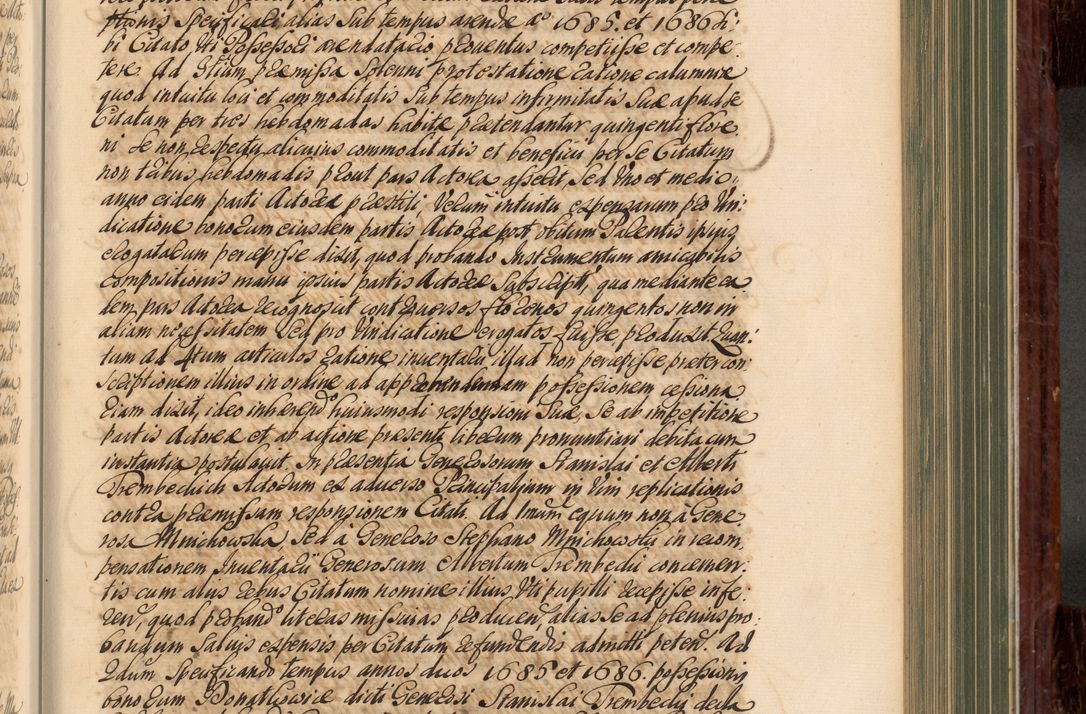 ptionis Specificali alias Sub tempus arendæ aᵒ 1685. et 1686 i-
bi Citato Uti Possessori arendatario proventus competiisse et compe-
tere. Ad 3tium præmissa Solenni protestatione ratione calumniæ
quod intuitu loci et commoditatis Sub tempus infirmitatis Suæ apud se
Citatum per tres hebdomadas habitæ prætendantur quingenti flore
ni Se non respectu alicuius commoditatis et beneficii per Se Citatum
non tribus hebdomadis prout pars Actorea asserit, Sed Uno et medio
anno eidem parti Actoreæ præstiti, Verum intuitu expensarum pro Vin
dicatione bonorum eiusdem partis Actoreæ post obitum Parentis ipsius
erogatarum percepisse dixit, quod probando Instrumentum amicabilis
compositionis manu ipsius partis Actoreæ Subscripti, qua mediante ea
dem pars Actorea recognoscit controversos florenos quingentos non in
aliam necessitatem Sed pro Vindicatione erogatos fuisse produxit. Quan-
tum ad 4tum articulos ratione inventarii illud non percepisse præter con
scriptionem illius in ordine ad apprehendendam possessionem cessiona
riam dixit, ideo inhærendo huiusmodi responsioni Suæ, Se ab impetitione
partis Actoreæ et ab actione præsenti liberum pronuntiari debita cum
instantia postulavit. In præsentia Generosorum Stanislai et Alberti
Trembeckich Actorum ex adverso Principalium in Vim replicationis
contra præmissam responsionem Citati. Ad 1mum equum non a Gene
rosa Mnichowska, Sed à Generoso Stephano Mnichowski in recom
pensationem Inventarii Generosum Albertum Trembecki concernen
tis cum aliis rebus Citatum nomine illius Uti pupilli recepisse infe
ren, quod probando literas missivas producen, alias Se ad plenius pro
bandum Salvis expensis per Citatum refundendis admitti peten. Ad
2dum Specificando tempus annos duos 1685 et 1686. possessionis
bonorum Donatkowice dicti Generosi Stanislai Trembecki decla